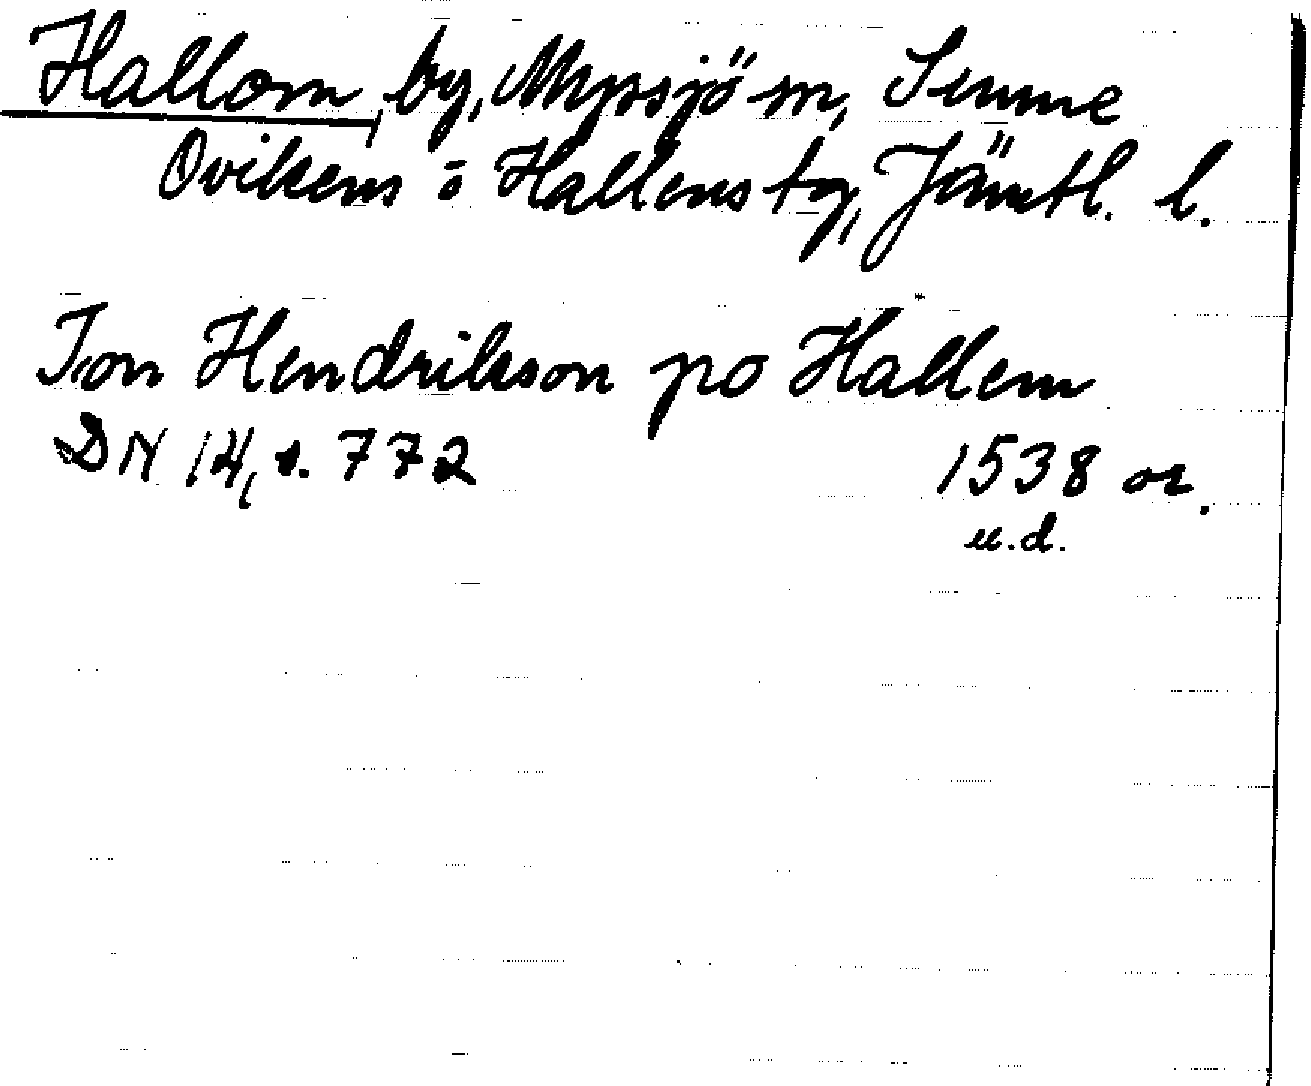 Hallom, by, Myssjö sn, Sunne
Ovikens o Hallens tg, Jämtl. l.
Jon Hendrikson po Hallem
DN 14, s. 772 1538 or.
u.d.